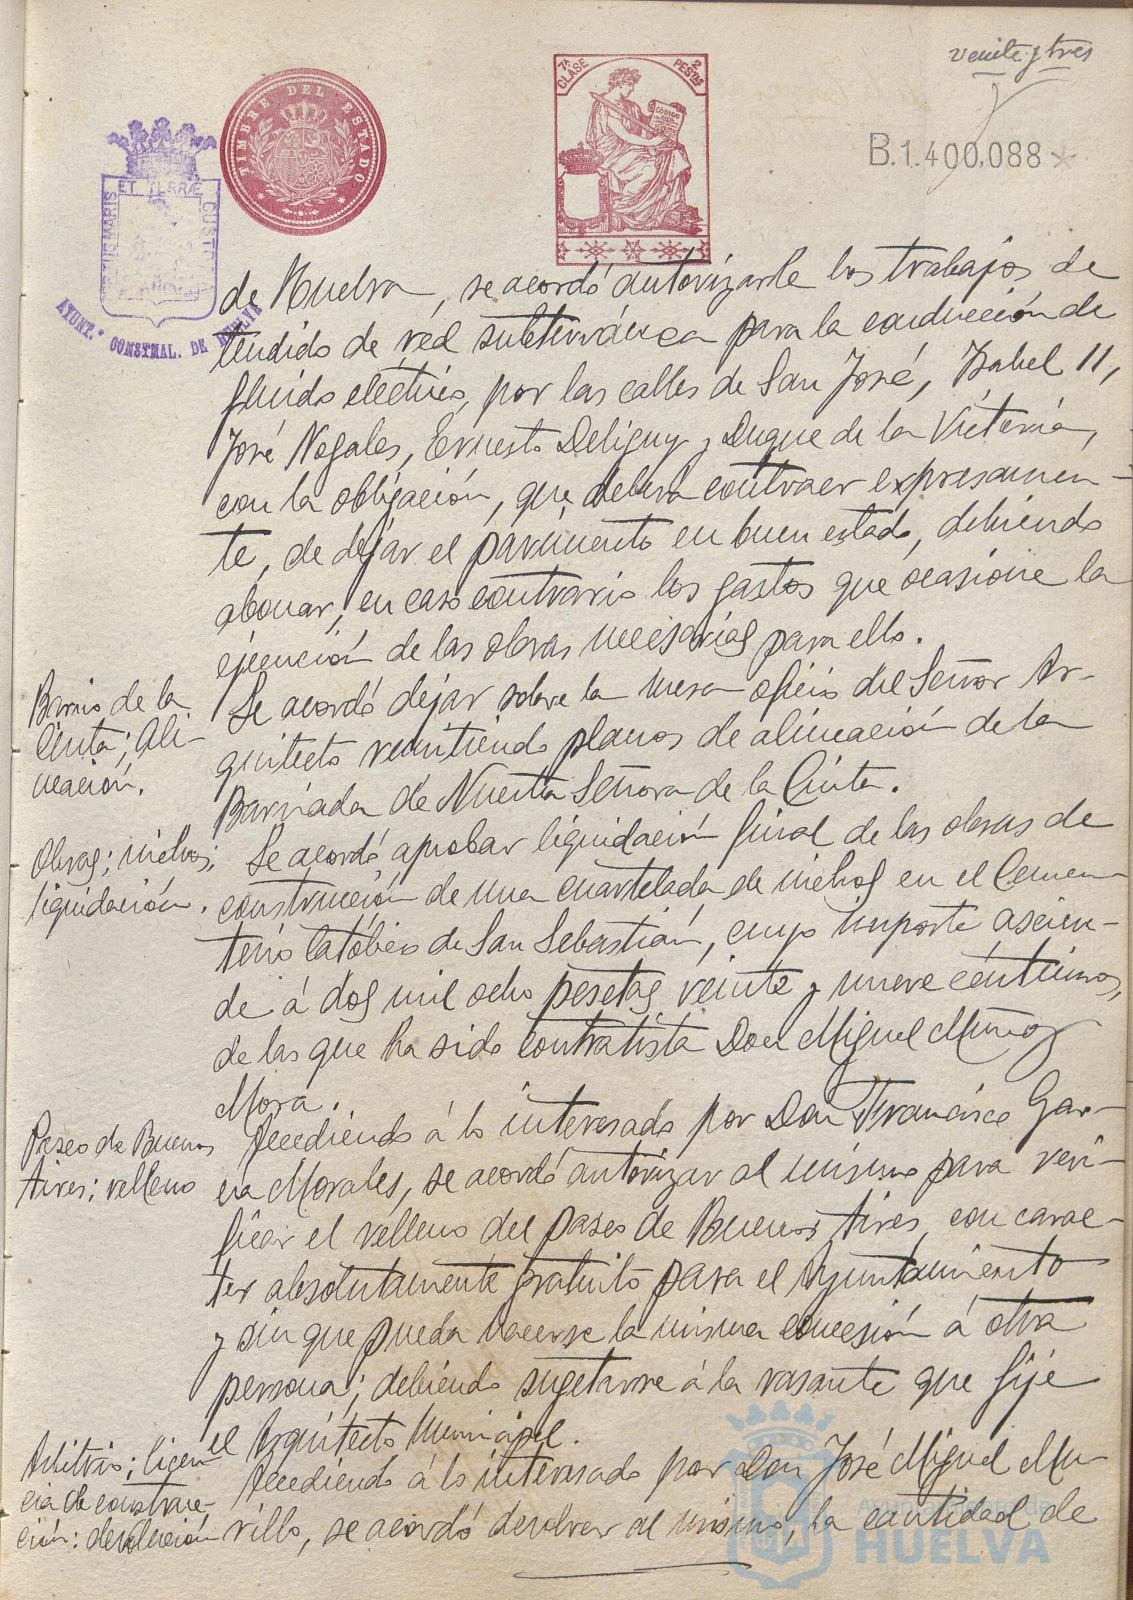 veinte y tres
TIMBRE DEL ESTADO
7ª CLASE
2 PESTAS
CÓDIGO
B.1.400.088*
PORTUS MARIS ET TERRÆ CUSTODIA
AYUNT.º CONSTNAL. DE HUELVA
de Huelva, se acordó autorizarle los trabajos de
tendido de red subterránea para la conducción de
fluido eléctrico, por las calles de San José, Isabel II,
José Nogales, Ernesto Deligny y Duque de la Victoria,
con la obligación, que deberá contraer expresamen-
te, de dejar el pavimento en buen estado, debiendo
abonar, en caso contrario los gastos que ocasione la
ejecución de las obras necesarias para ello.
Barrio de la
Cinta; ali-
neación.
Se acordó dejar sobre la mesa oficio del Señor Ar-
quitecto remitiendo planos de alineación de la
Barriada de Nuestra Señora de la Cinta.
Obras; nichos;
liquidación.
Se acordó aprobar liquidación final de las obras de
construcción de una cuartelada de nichos en el Cemen-
terio Católico de San Sebastián, cuyo importe ascien-
de á dos mil ocho pesetas veinte y nueve céntimos,
de las que ha sido contratista Don Miguel Muñoz
Mora.
Paseo de Buenos
Aires; relleno
Accediendo á lo interesado por Don Francisco Gar-
cia Morales, se acordó autorizar al mismo para veri-
ficar el relleno del paseo de Buenos Aires, con carac-
ter absolutamente gratuito para el Ayuntamiento
y sin que pueda hacerse la misma concesión á otra
persona; debiendo sugetarse á la rasante que fije
el Arquitecto Municipal.
Arbitrio; licen-
cia de construc-
ción: devolución
Accediendo á lo interesado por Don José Miguel Mu-
rillo, se acordó devolver al mismo, la cantidad de
Ayuntamiento de
HUELVA